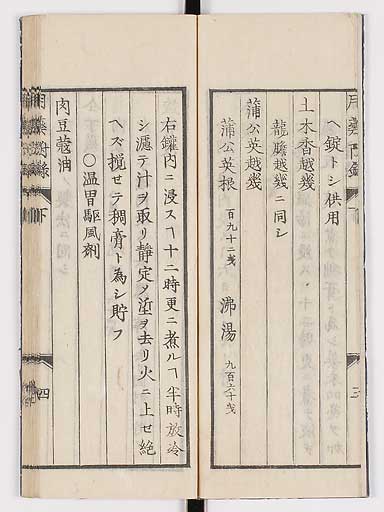 ヘ錠トシ供用
土木香越幾
龍膽越幾ニ同シ
蒲公英越幾
蒲公英根 百九十二戔 沸湯 九百六十戔
右鑵内ニ浸スヿ十二時更ニ煮ルヿ半時放冷
シ漉テ汁ヲ取リ静定ノ渣ヲ去リ火ニ上セ絶
ヘズ攪セテ稠膏ト為シ貯フ
〇温胃駆風剤
肉豆蔲油
下
四